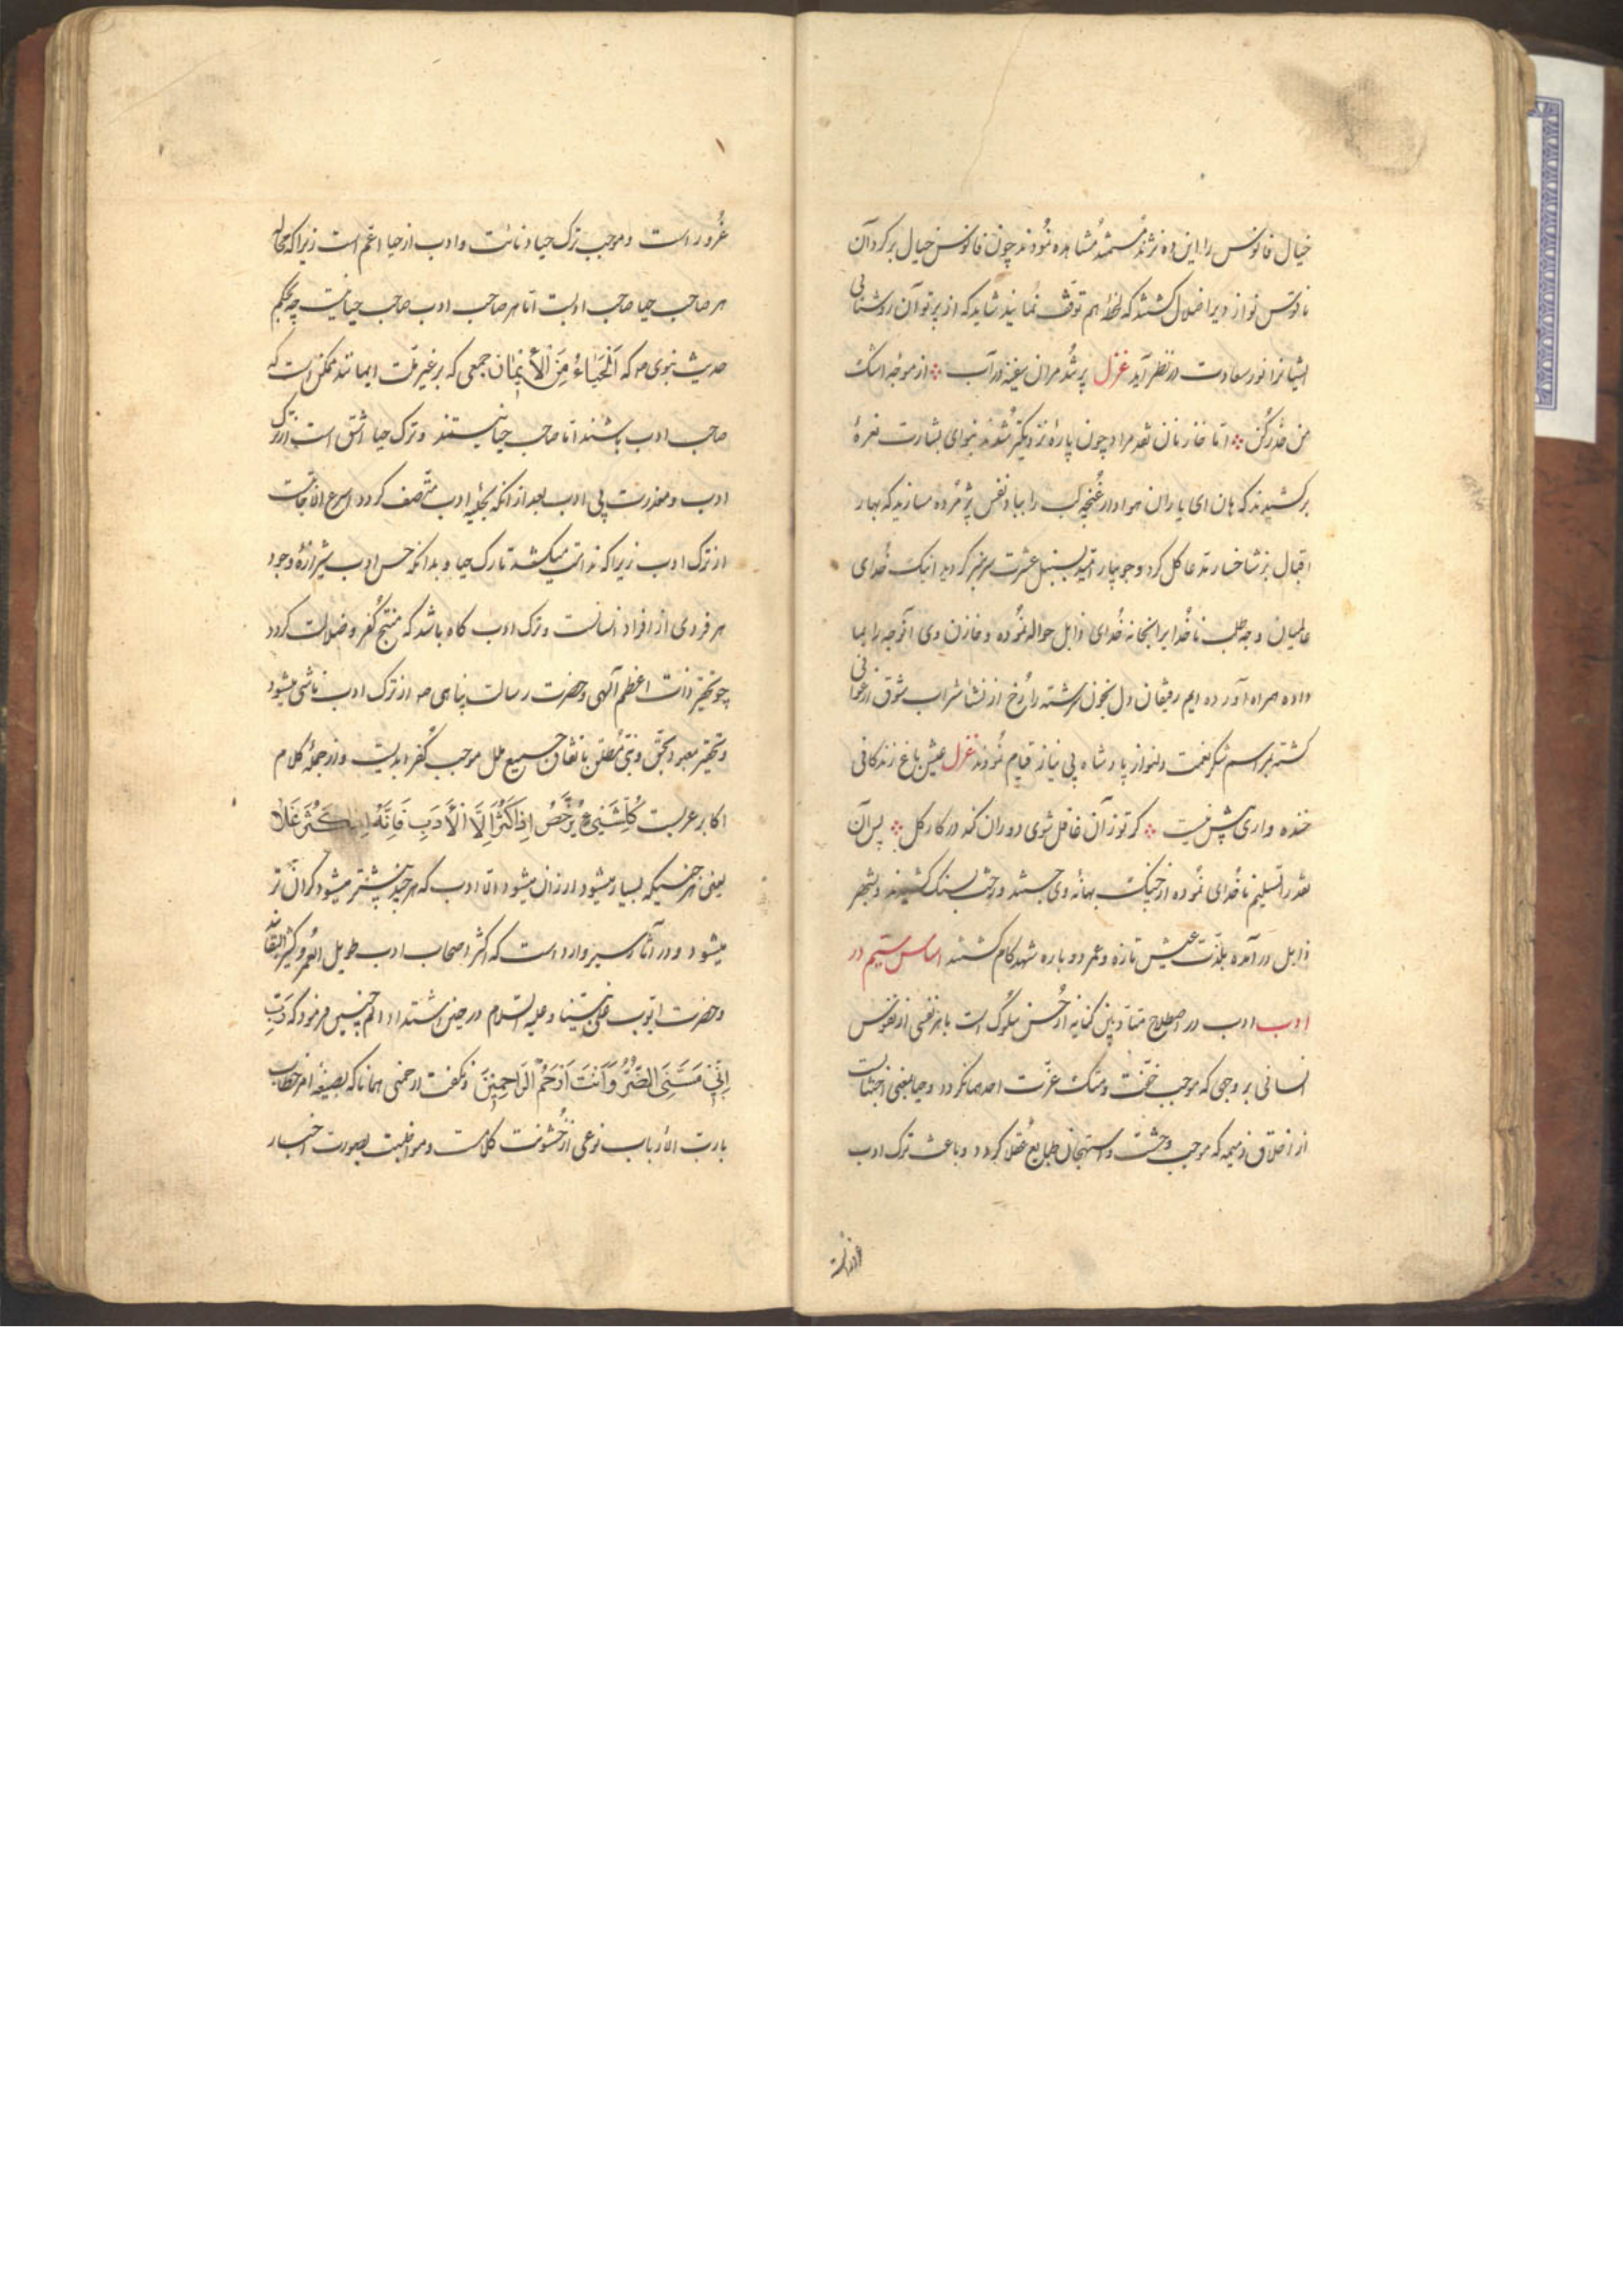 خیال فانوس را این ده نژند مستمند مشاهده نمودند چون فانوس خیال بر کرد آن
ناقوس نواز دیر اضلال کشتند که لحظهٔ هم توقف نمائید شاید که از پرتو آن روشنائی
اشیا نرا نور سعادت در نظر آید غزل پر شد مران سفینه در آب ؞ از موجهٔ اشک
من حذر کن ؞ اما خازنان نقد مراد چون پارهٔ نزدیکتر شدند بنوای بشارت نعرهٔ
برکشیدند که هان ای یاران هوادار غنچه لب را بباد نفس پژمرده مسازید که بهار
اقبال بر شاخسار مدعا کل کرد و جویبار امید بسنبل عشرت سرسبز کردید اینک خدای
عالمیان وجه طلب ناخدا را بخانه خدای ذابل حواله نموده و خازن وی آنوجه را بما
داده همراه آورده ایم رفیقان دل بخون سرشته را رخ از نشأ شراب شوق ارغوانی
کشته بمراسم شکر نعمت دلنواز پادشاه بی نیاز قیام نمودند غزل عیش باغ زندکانی
خنده واری بیش نیست ؞ کر تو زان غافل شوی دوران کند در کار کل ؞ پس آن
نقد را تسلیم ناخدای نموده از چنک بهانهٔ وی جستند و رخت بسنک کشیدند و بشهر
ذابل در آمده بلذت عیش تازه و عمر دوباره شهد کام کشتند اساس سیم در
ادب ادب در اصطلاح متأدبین کنایه از حسن سلوک است با هر نفسی از نفوس
انسانی بر وجهی که موجب خفت و هتک عزت احدها نکردد و حیا یعنی اجتناب
از اخلاق ذمیمه که موجب وحشت و استهجان طبایع عقلا کردد و باعث ترک ادب
غرور است
غرور است و موجب ترک حیا دنائت و ادب از حیا اعم است زیرا که محاله
هر صاحب حیا صاحب ادبست اما هر صاحب ادب صاحب حیا نیست چه بحکم
حدیث نبوی صه که اَلْحَیَاءُ مِنَ الْأِیْمَانِ جمعی که بر غیر ملت ایمانند ممکن است که
صاحب ادب باشند اما صاحب حیا نیستند و ترک حیا اشق است از ترک
ادب و معذرت بی ادب بعد از آنکه بحلیهٔ ادب متصف کردد اسرع الاجابت
از ترک ادب زیرا که ندامت میکشد تارک حیا و بدانکه حسن ادب شیرازهٔ وجود
هر فردی از افراد انسانست و ترک ادب کاه باشد که منتج کفر و ضلالت کردد
چو تحقیر ذات اعظم آلهی و حضرت رسالت پناهی صه از ترک ادب ناشی میشود
و تحقیر معبود بحق و نبی مطلق باتفاق جمیع ملل موجب کفر ابدیست و از جمله کلام
اکابر عربست کُلُّ شَیْءٍ یَرْخُصُ اِذَا کَثُرَ اِلَّا الْأَدَبِ فَاِنَّهُ اِذَا کَثُرَ غَلَا
یعنی هر چیزیکه بسیار میشود ارزان میشود اما ادب که هر چند بیشتر میشود کران تر
میشود و در آثار سیر وارد است که اکثر اصحاب ادب طویل العمر و کثیر البقا اند
و حضرت ایوب علی نبینا و علیه السلام در حین اشتداد الم چنین فرمود که رَبِّ
اِنِّی مَسَّنِیَ الضُّرُّ وَ اَنْتَ اَرْحَمُ الرَّاحِمِیْنَ و نکفت ارحمنی همانا که بصیغهٔ امر خطاب
با رب الارباب نوعی از خشونت کلامست و مواظبت بصورت اخبار